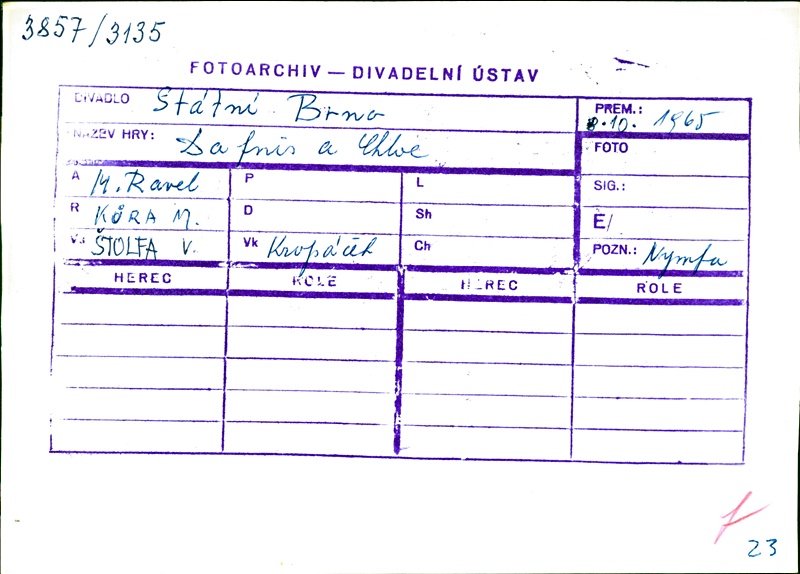 3857/3135
FOTOARCHIV — DIVADELNÍ ÚSTAV
DIVADLO Státní Brno
PREM.: 8.10. 1965
NÁZEV HRY: Dafnis a Chloe
FOTO
A M. Ravel P L SIG.:
R KŮRA M. D Sh E/
V. ŠTOLFA V. Vk Kropáček Ch POZN.: Nymfa
HEREC ROLE HEREC ROLE
23